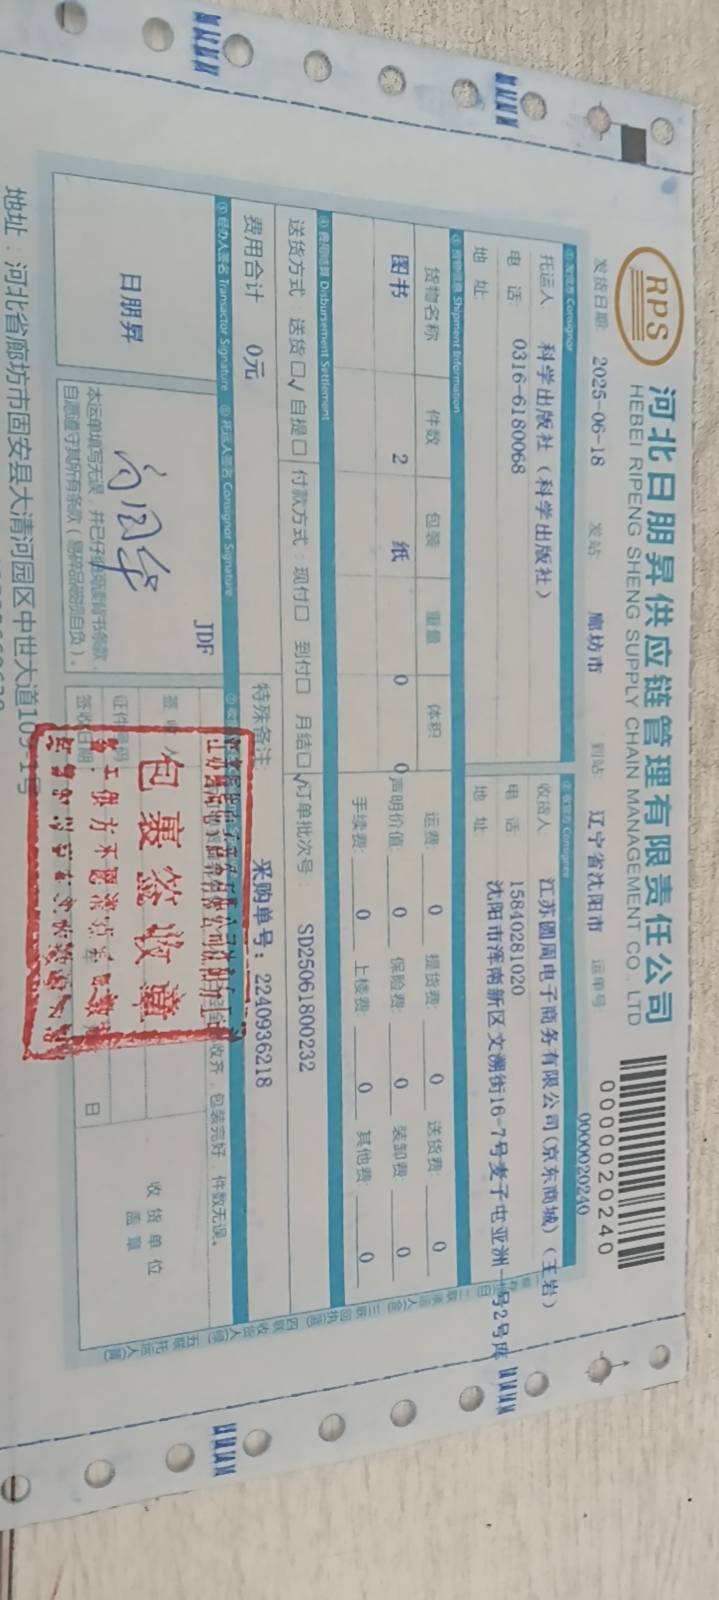 RPS
河北日朋昇供应链管理有限责任公司
HEBEI RIPENG SHENG SUPPLY CHAIN MANAGEMENT CO., LTD
0000020240
发货日期 2025-06-18 发站 廊坊市 到站 辽宁省沈阳市 运单号 0000020240
① 发货方 Consignor ② 收货方 Consignee
托运人 科学出版社（科学出版社） 收货人 江苏圆周电子商务有限公司(京东商城)（王岩）
电 话 0316-6180068 电 话 15840281020
地 址 地 址 沈阳市浑南新区文溯街16-7号麦子屯亚洲一号2号库
③ 货物信息 Shipment Information
货物名称 件数 包装 重量 体积 运费: 0 提货费: 0 送货费: 0
图书 2 纸 0 0 声明价值: 0 保险费: 0 装卸费: 0
手续费: 0 上楼费: 0 其他费: 0
④ 费用结算 Disbursement Settlement
送货方式：送货☐√ 自提☐ 付款方式：现付☐ 到付☐ 月结☐√ 订单批次号： SD25061800232
费用合计 0元 特殊备注 采购单号: 2240936218
⑤ 经办人签名 Transactor Signature ⑥ 托运人签名 Consignor Signature
日朋昇
JDF
本运单填写无误，并已仔细阅读背书条款，
自愿遵守其所有条款（易碎品破损自负）。
收齐，包装完好，件数无误。
签收人
证件号码
签收日期 日
收货单位
盖章
包裹签收章
地址：河北省廊坊市固安县大清河园区中世大道109-1号